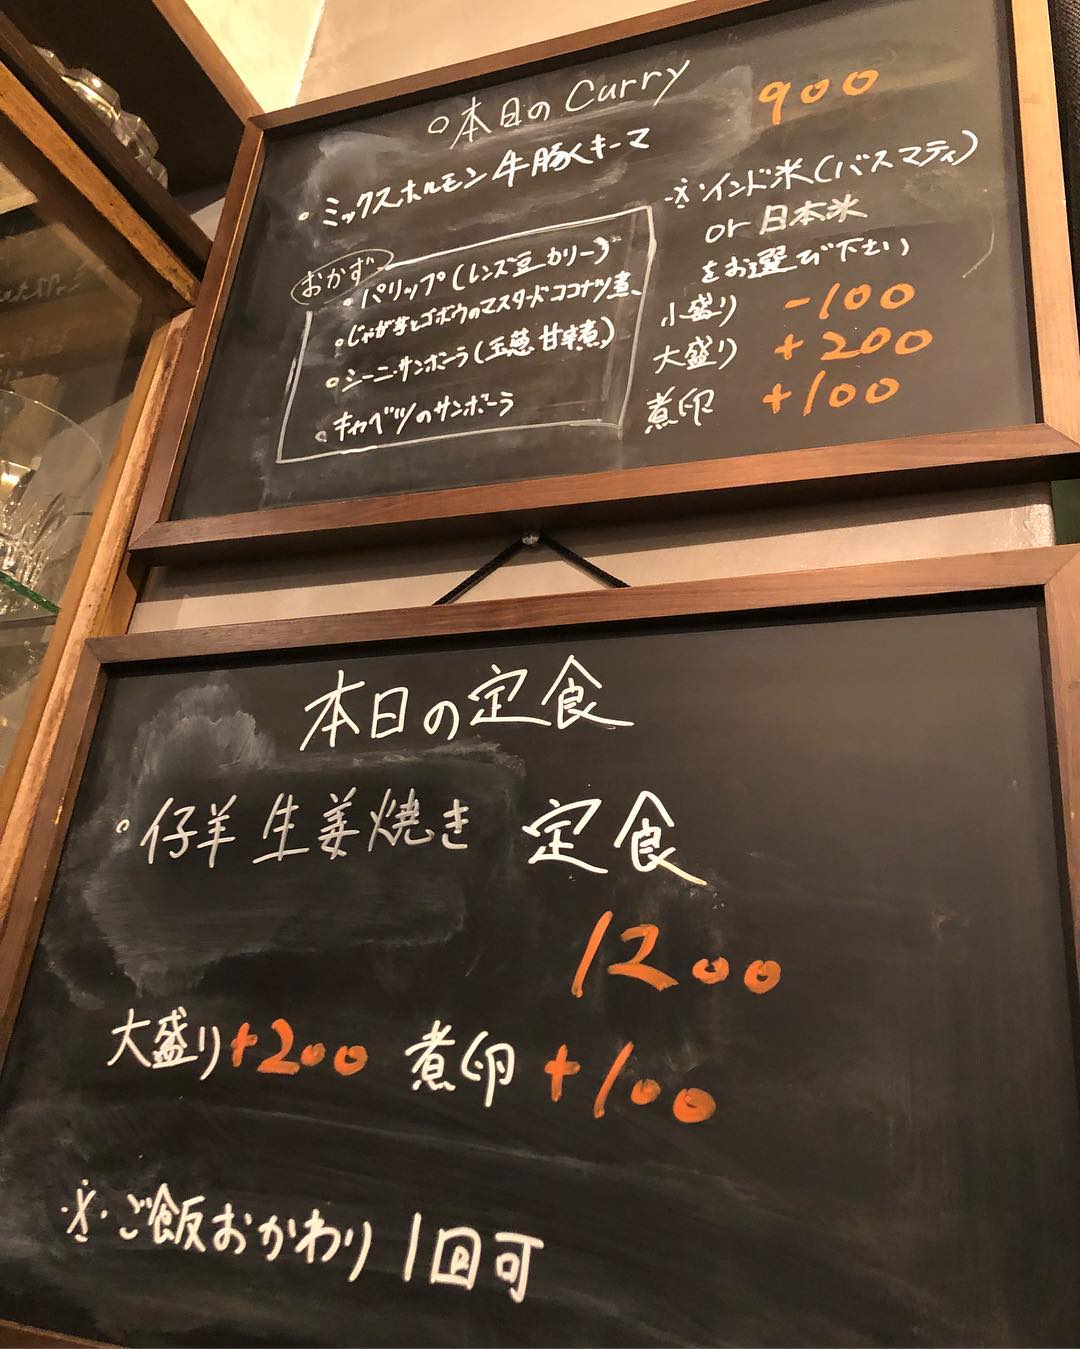 ○本日のCurry 900
○ミックスホルモン牛豚キーマ
※インド米(バスマティ)
or 日本米
をお選び下さい
おかず
・パリップ(レンズ豆カリー)
・じゃが芋とゴボウのマスタードココナツ煮
・シーニ・サンボーラ(玉葱甘辛煮)
・キャベツのサンボーラ
小盛り -100
大盛り +200
煮卵 +100
本日の定食
○仔羊生姜焼き 定食
1200
大盛り+200 煮卵 +100
※ご飯おかわり1回可